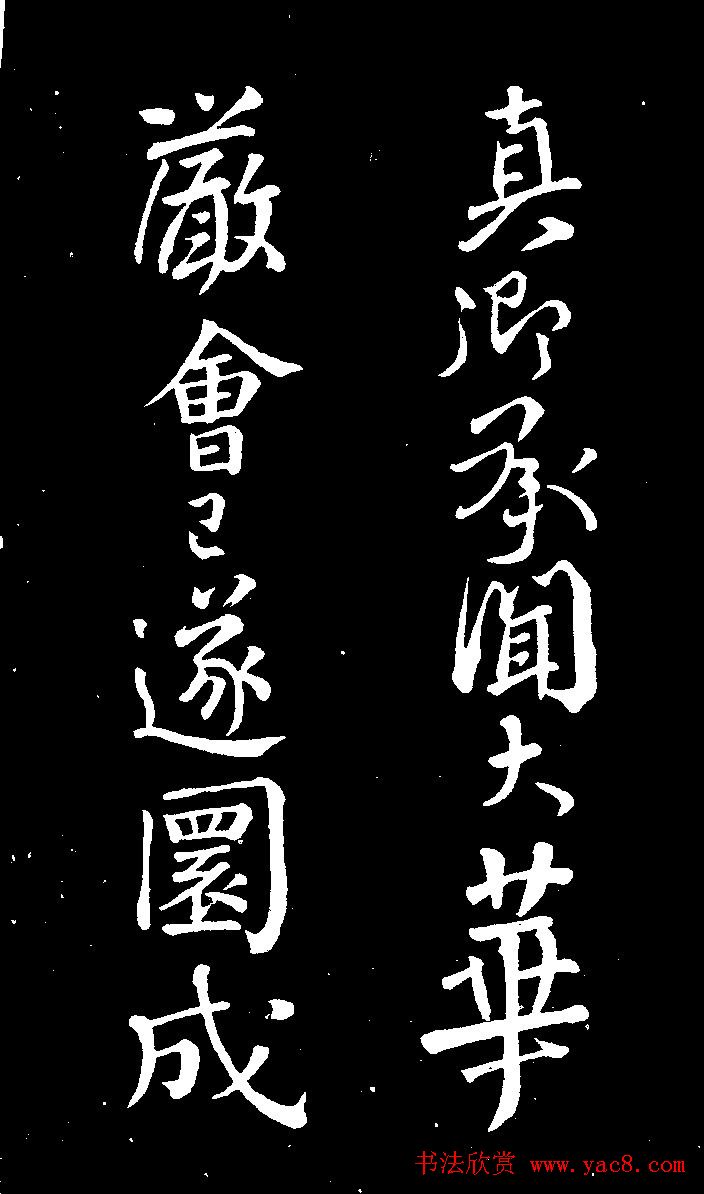 真卿承聞大華
嚴會已遂圜成
书法欣赏 www.yac8.com